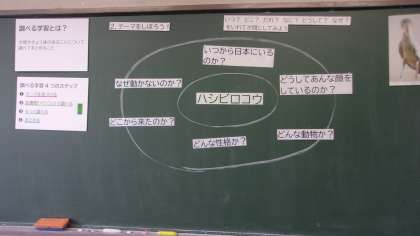 調べる学習とは？
2. テーマをしぼろう？
いつ？ どこ？ だれ？ なに？ どうして？ なぜ？
いつから日本にいる
のか？
なぜ動かないのか？
どうしてあんな顔を
しているのか？
調べる学習 4つのステップ
ハシビロコウ
どこから来たのか？
どんな性格か？
どんな動物か？